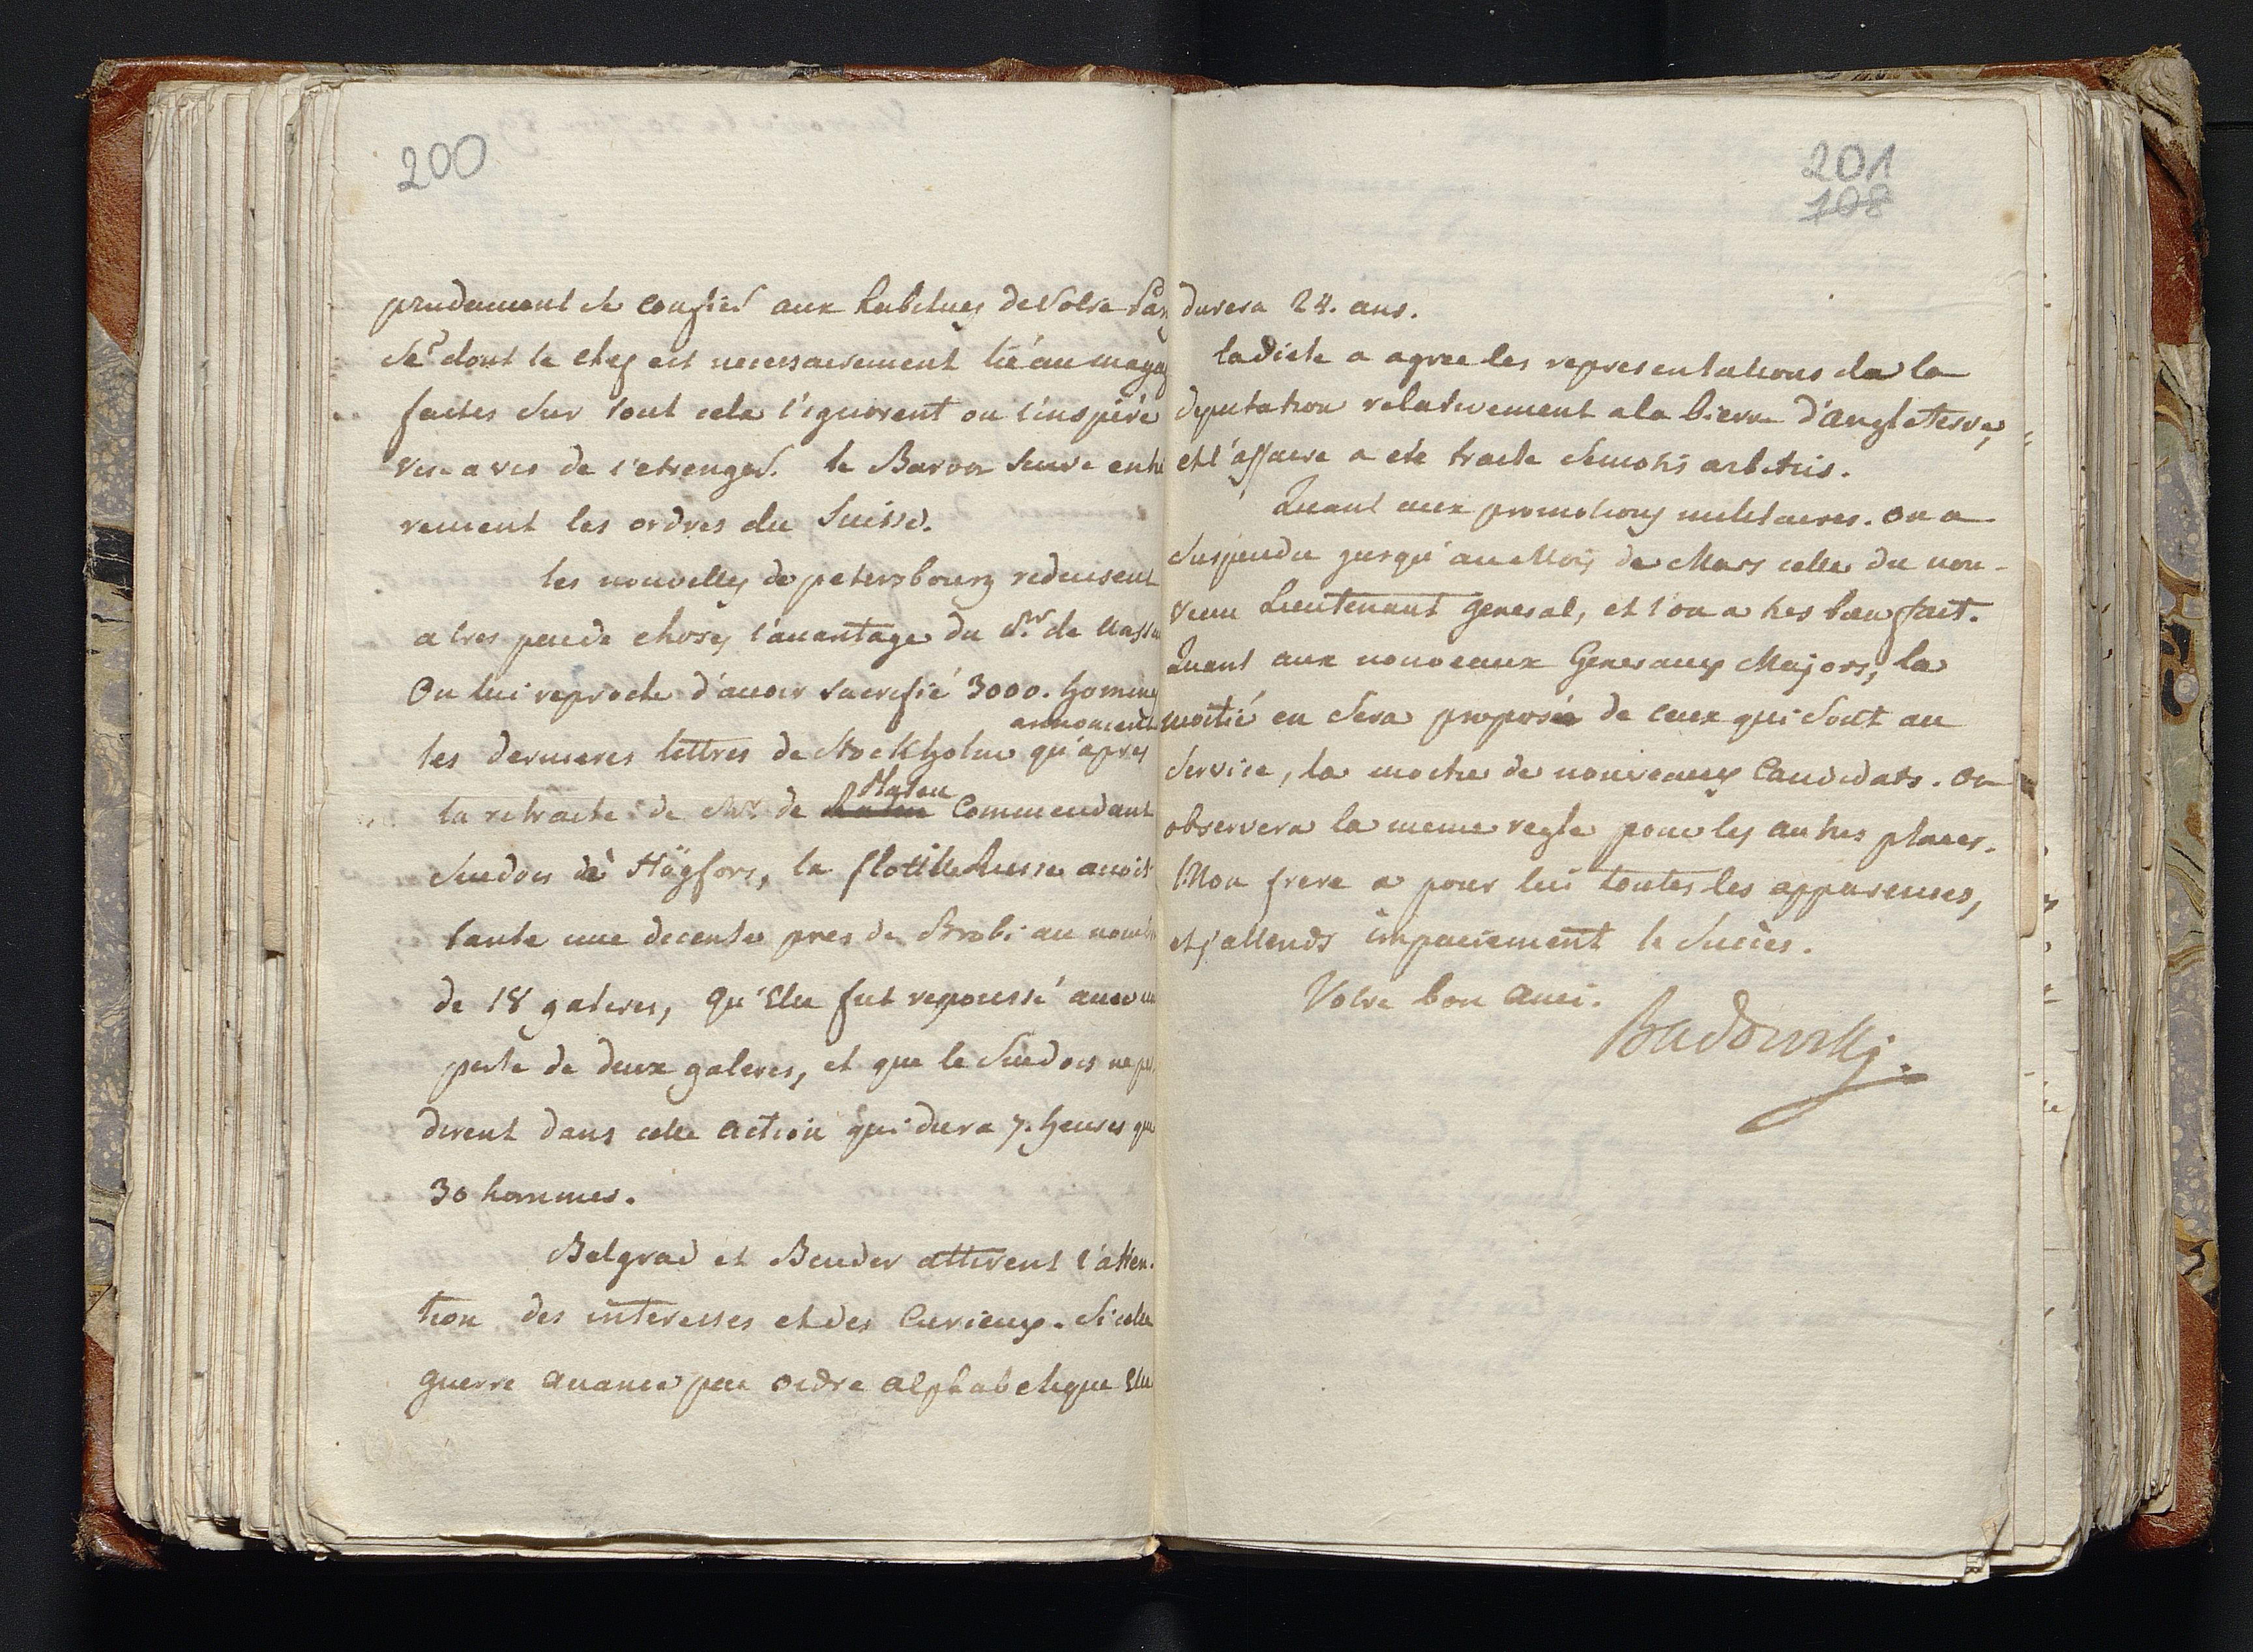 200
prudament se confier aux habitues de Votre
Se^r dont le chef est necessairement lié au
faites sur tout cela l'ignorent ou l'inspiré
vis a vis de l'etranger. le Baron suive enti
rement les ordres du Suisse.
les nouvelles de petersbourg reduisent
a tres peu de choses l'avantage du S^r de Nassau
On lui reproche d'avoir sacrifié 3000. homme
annoncent
les dernieres lettres de Stockholm qu'apres
Haten
la retraite de Mr. de Commendant
Suedois de Högfors, la flotille Russe avoit
tanté une decente pres de Brobi au nomb
de 18 galeres, qu'Elle fut repoussé avec
perte de deux galeres, et que le Suedois ne per
dirent dans cette action qui dura 7. heures que
30 hommes.
Belgrad et Bender attirent l'atten-
tion des interesses et des Curieux. Si cette
guerre avance par ordre alphabetique Elle
201
108
durera 24. ans.
la diete a agree les representations de la
deputation relativement a la bierre d'angleterre,
et l'affaire a été traite semotis arbitris.
Quant aux promotions militaires. on a
suspendu jusqu'au Mois de Mars celle du nou-
veau Lieutenant general, et l'on a tres bien fait.
Quant aux nouveaux Generaux Majors, la
moitié en sera proposée de ceux qui sont au
Service, la moitie de nouveaux Candidats. On
observera la meme regle pour les autres places.
Mon frere a pour lui toutes les apparences,
et j'attends impaciement le Succes.
Votre bon ami.
Badowski.